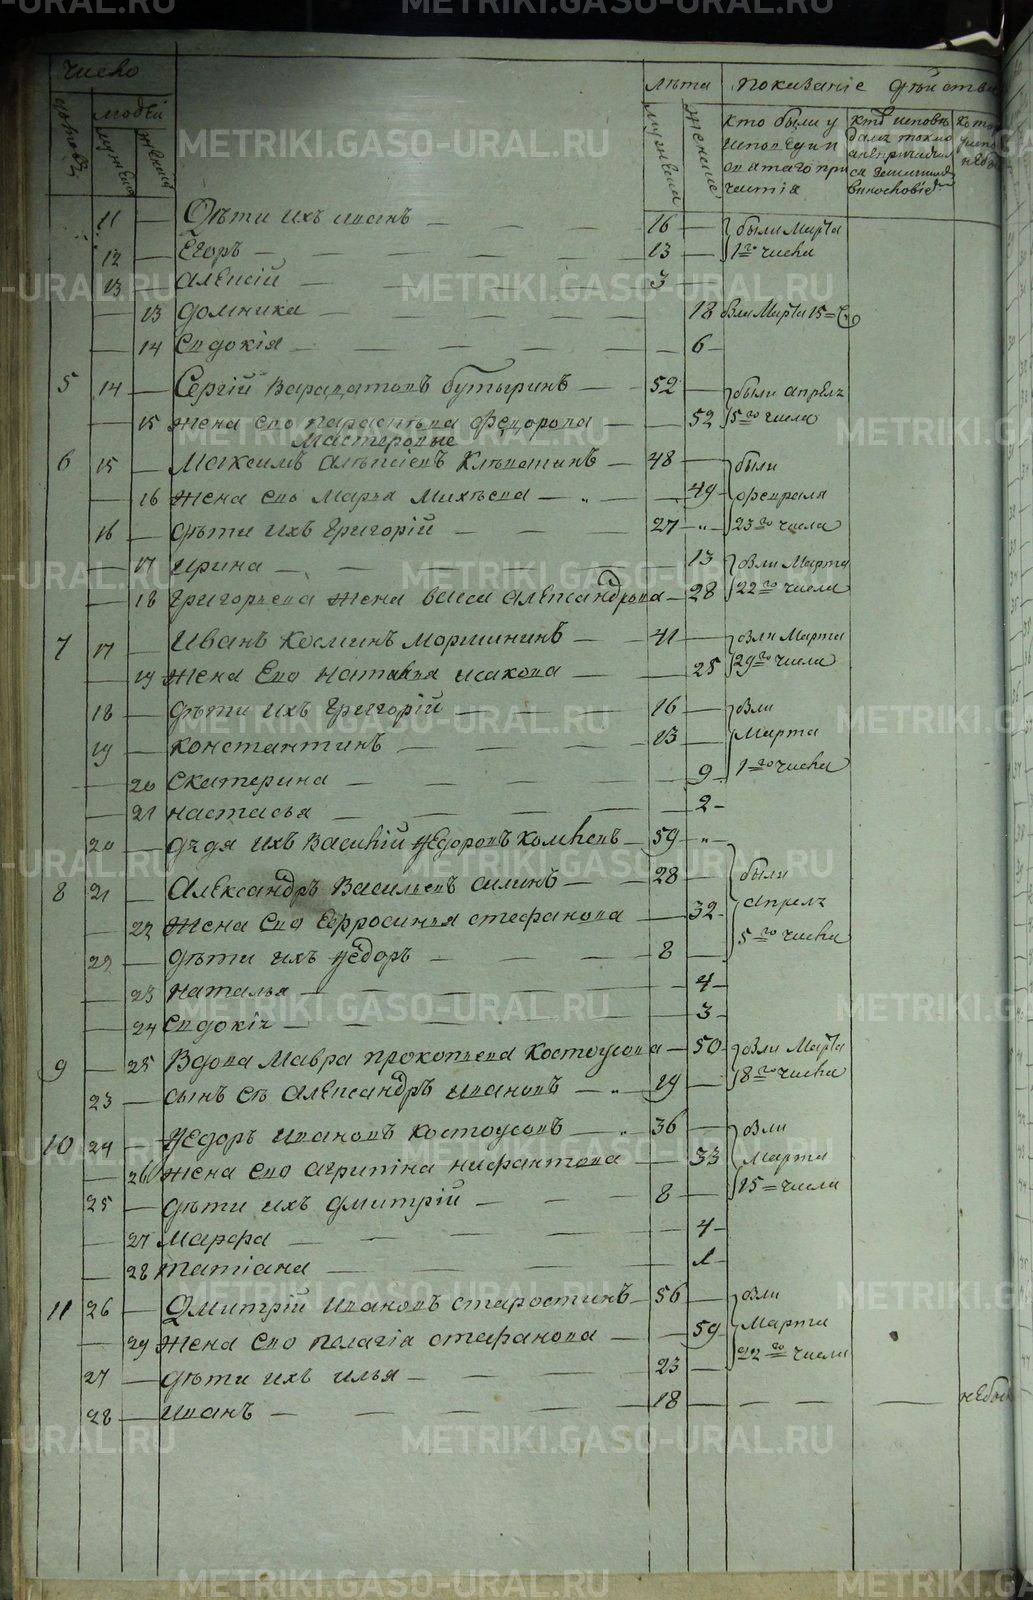 METRIKI.GASO-URAL.RU
Число
людей
лѣта
показаніе дѣйства
мужеска
женска
кто были у
исповеди и
святаго при
частія
11 — Дѣти ихъ иванъ — 16 — были Марта
12 — Егоръ — 13 — 1го числа
13 — Алексій — 3 —
— 13 домника — 18 были Марта 15 = Ч
— 14 Евдокія — 6
5 14 — Сергій Варлаамовъ бутыринъ — 52 — были апрелѧ
— 15 жена его парасковья Федорова — 52 5го числа
Мастеровые
6 15 — Максимъ Алексіевъ — 48 — были
— 16 жена его Марья Михѣева — 49 февраля
16 — дѣти ихъ григорій — 27 23го числа
— 17 ирина — 13 были Марта
— 18 григорьева жена васса александрова — 28 22го числа
7 17 — Иванъ косминъ моршининъ — 41 — были Марта
— 19 жена его наталья исакова — 25 29го числа
18 — дѣти ихъ григорій — 16 — были
19 — константинъ — 13 — Марта
— 20 екатерина — 9 1го числа
— 21 настасья — 2
20 — дядя ихъ василій ѳедоровъ — 59
8 21 — Александръ Васильевъ силинъ — 28 — были
— 22 жена его Ефросинья стефанова — 32 апрелѧ
22 — дѣти ихъ ѳедоръ — 8 — 5го числа
— 23 наталья — 4
— 24 евдокія — 3
9 — 25 Вдова Мавра прокопьева костоусова — 50 были Марта
23 — сынъ еѣ александръ ивановъ — 19 — 18го числа
10 24 — ѳедоръ ивановъ костоусовъ — 36 — были
— 26 жена его агрипіна нифантова — 33 Марта
25 — дѣти ихъ дмитрій — 8 — 15 = числа
— 27 Марфа — 4
— 28 татіана — 1
11 26 — Дмитрій ивановъ старостинъ — 56 — были
— 29 жена его пелагія стефанова — 59 Марта
27 — дѣти ихъ илья — 23 — 22го числа
28 — иванъ — 18 —